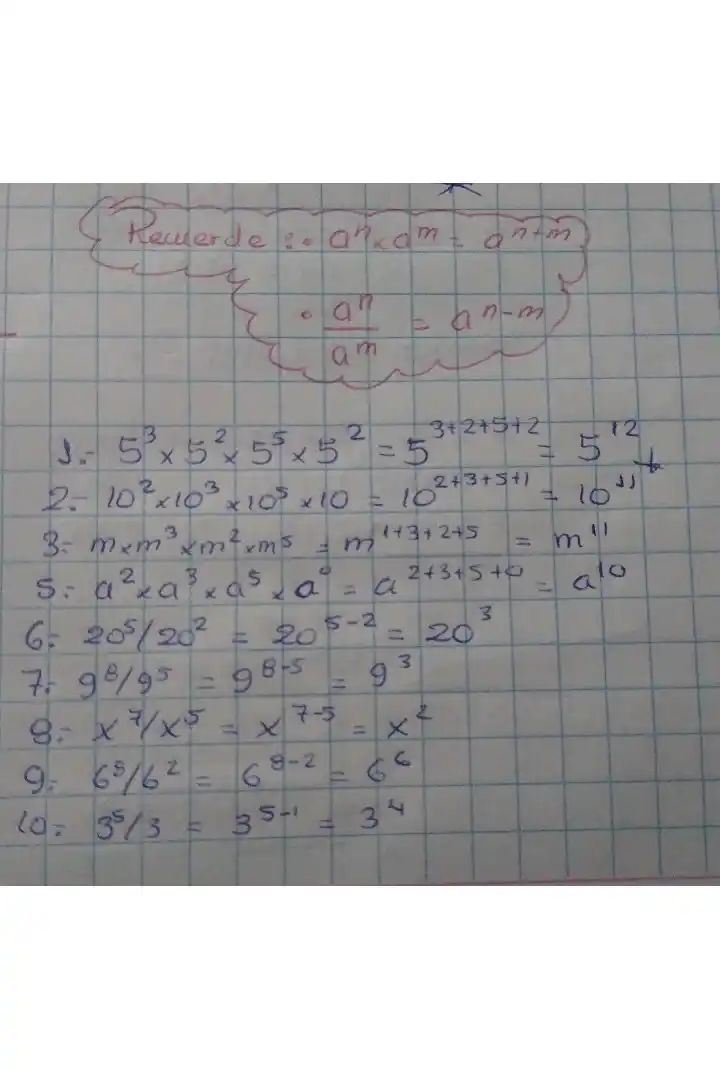 Recuerde :• aⁿ × aᵐ = aⁿ⁺ᵐ
• aⁿ/aᵐ = aⁿ⁻ᵐ
1.- 5³ × 5² × 5⁵ × 5² = 5³⁺²⁺⁵⁺² = 5¹²
2.- 10² × 10³ × 10⁵ × 10 = 10²⁺³⁺⁵⁺¹ = 10¹¹
3.- m × m³ × m² × m⁵ = m¹⁺³⁺²⁺⁵ = m¹¹
5.- a² × a³ × a⁵ × a⁰ = a²⁺³⁺⁵⁺⁰ = a¹⁰
6.- 20⁵/20² = 20⁵⁻² = 20³
7.- 9⁸/9⁵ = 9⁸⁻⁵ = 9³
8.- x⁷/x⁵ = x⁷⁻⁵ = x²
9.- 6⁸/6² = 6⁸⁻² = 6⁶
10.- 3⁵/3 = 3⁵⁻¹ = 3⁴